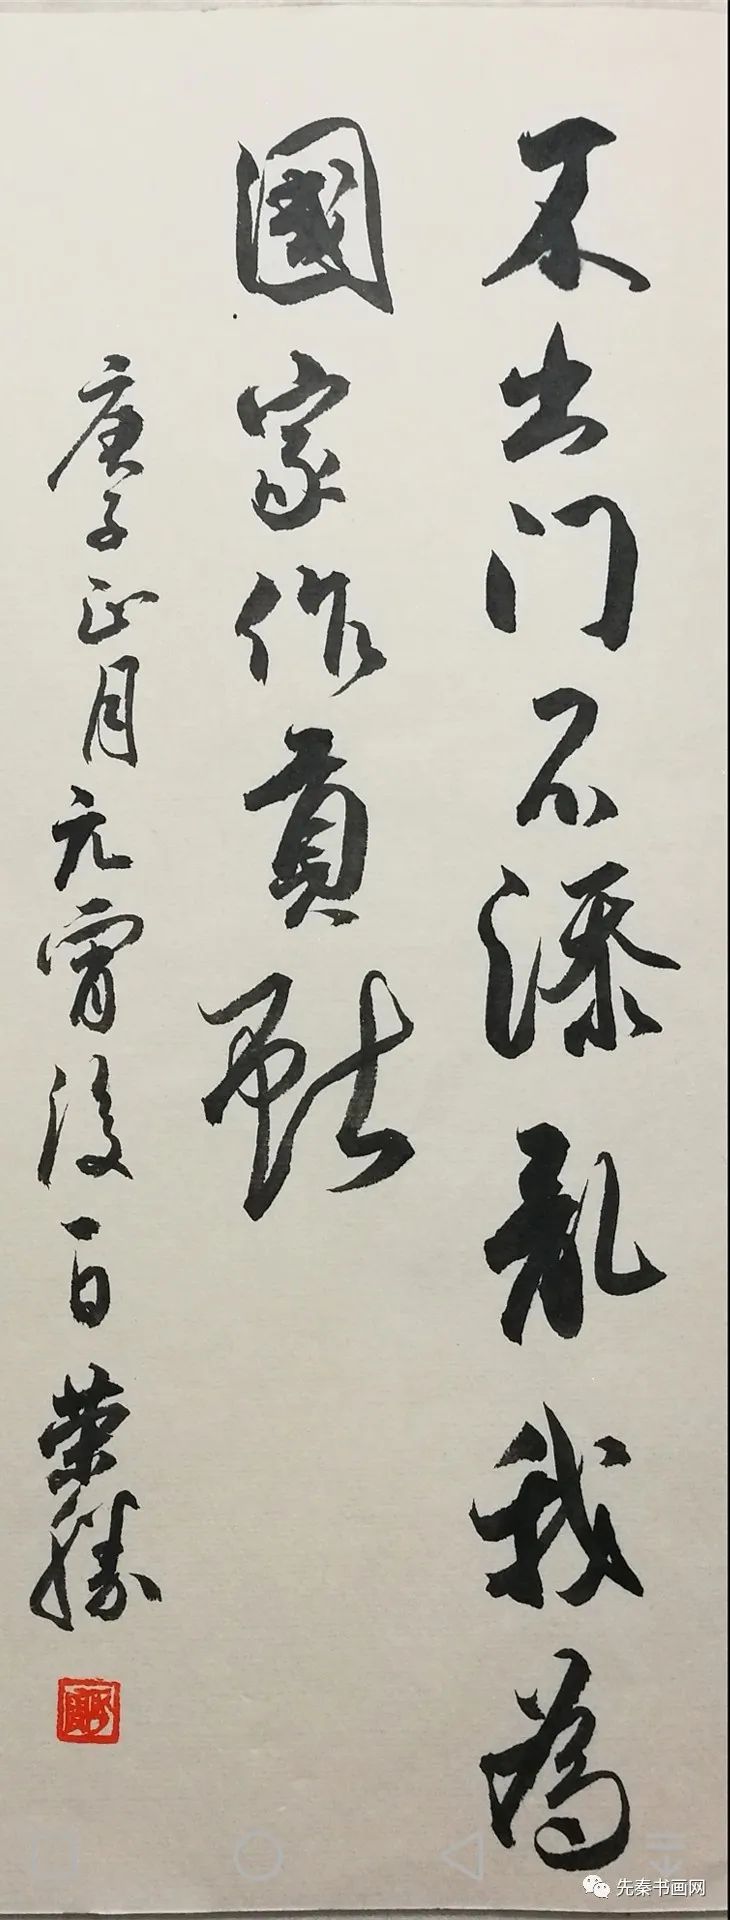 不出门不添亂我為
國家作貢獻
庚子正月元宵後一日荣勝
先秦书画网